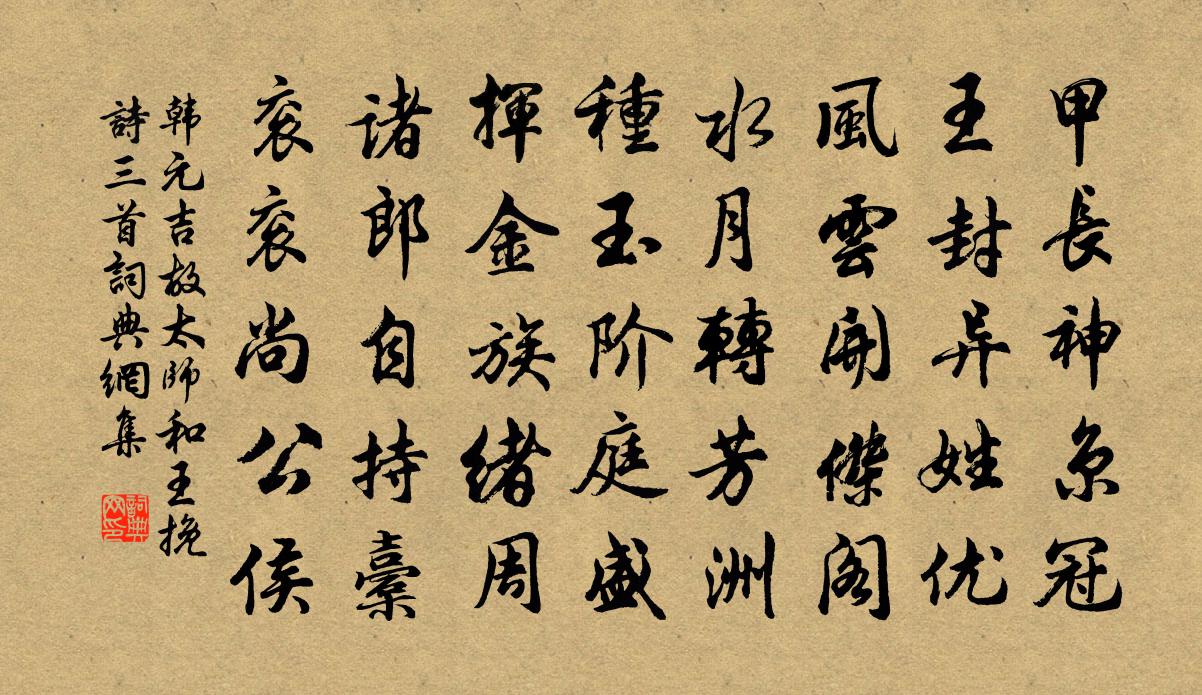 甲長神京冠
王封异姓优
風雲開傑閣
水月轉芳洲
種玉阶庭盛
揮金族绪周
诸郎自持橐
衮衮尚公侯
韩元吉故太師和王挽
詩三首詞典網集
詞典网印